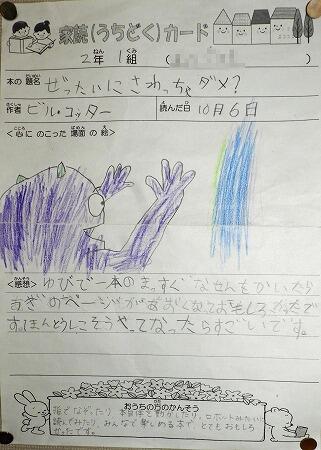 家読(うちどく)カード
2年 1組
本の題名 ぜったいにさわっちゃダメ?
作者 ビル・コッター 読んだ日 10月6日
<心にのこった場面の絵>
<感想> ゆびで一本のまっすぐなせんをかいたら
つぎのページがあおくなっておもしろかったで
す。ほんとうにこうやってなったらすごいです。
おうちの方のかんそう
指でなぞったり、本自体を動かしたり、ロボットみたいに
読んでみたり、みんなで楽しめる本で、とてもおもしろ
かったです。